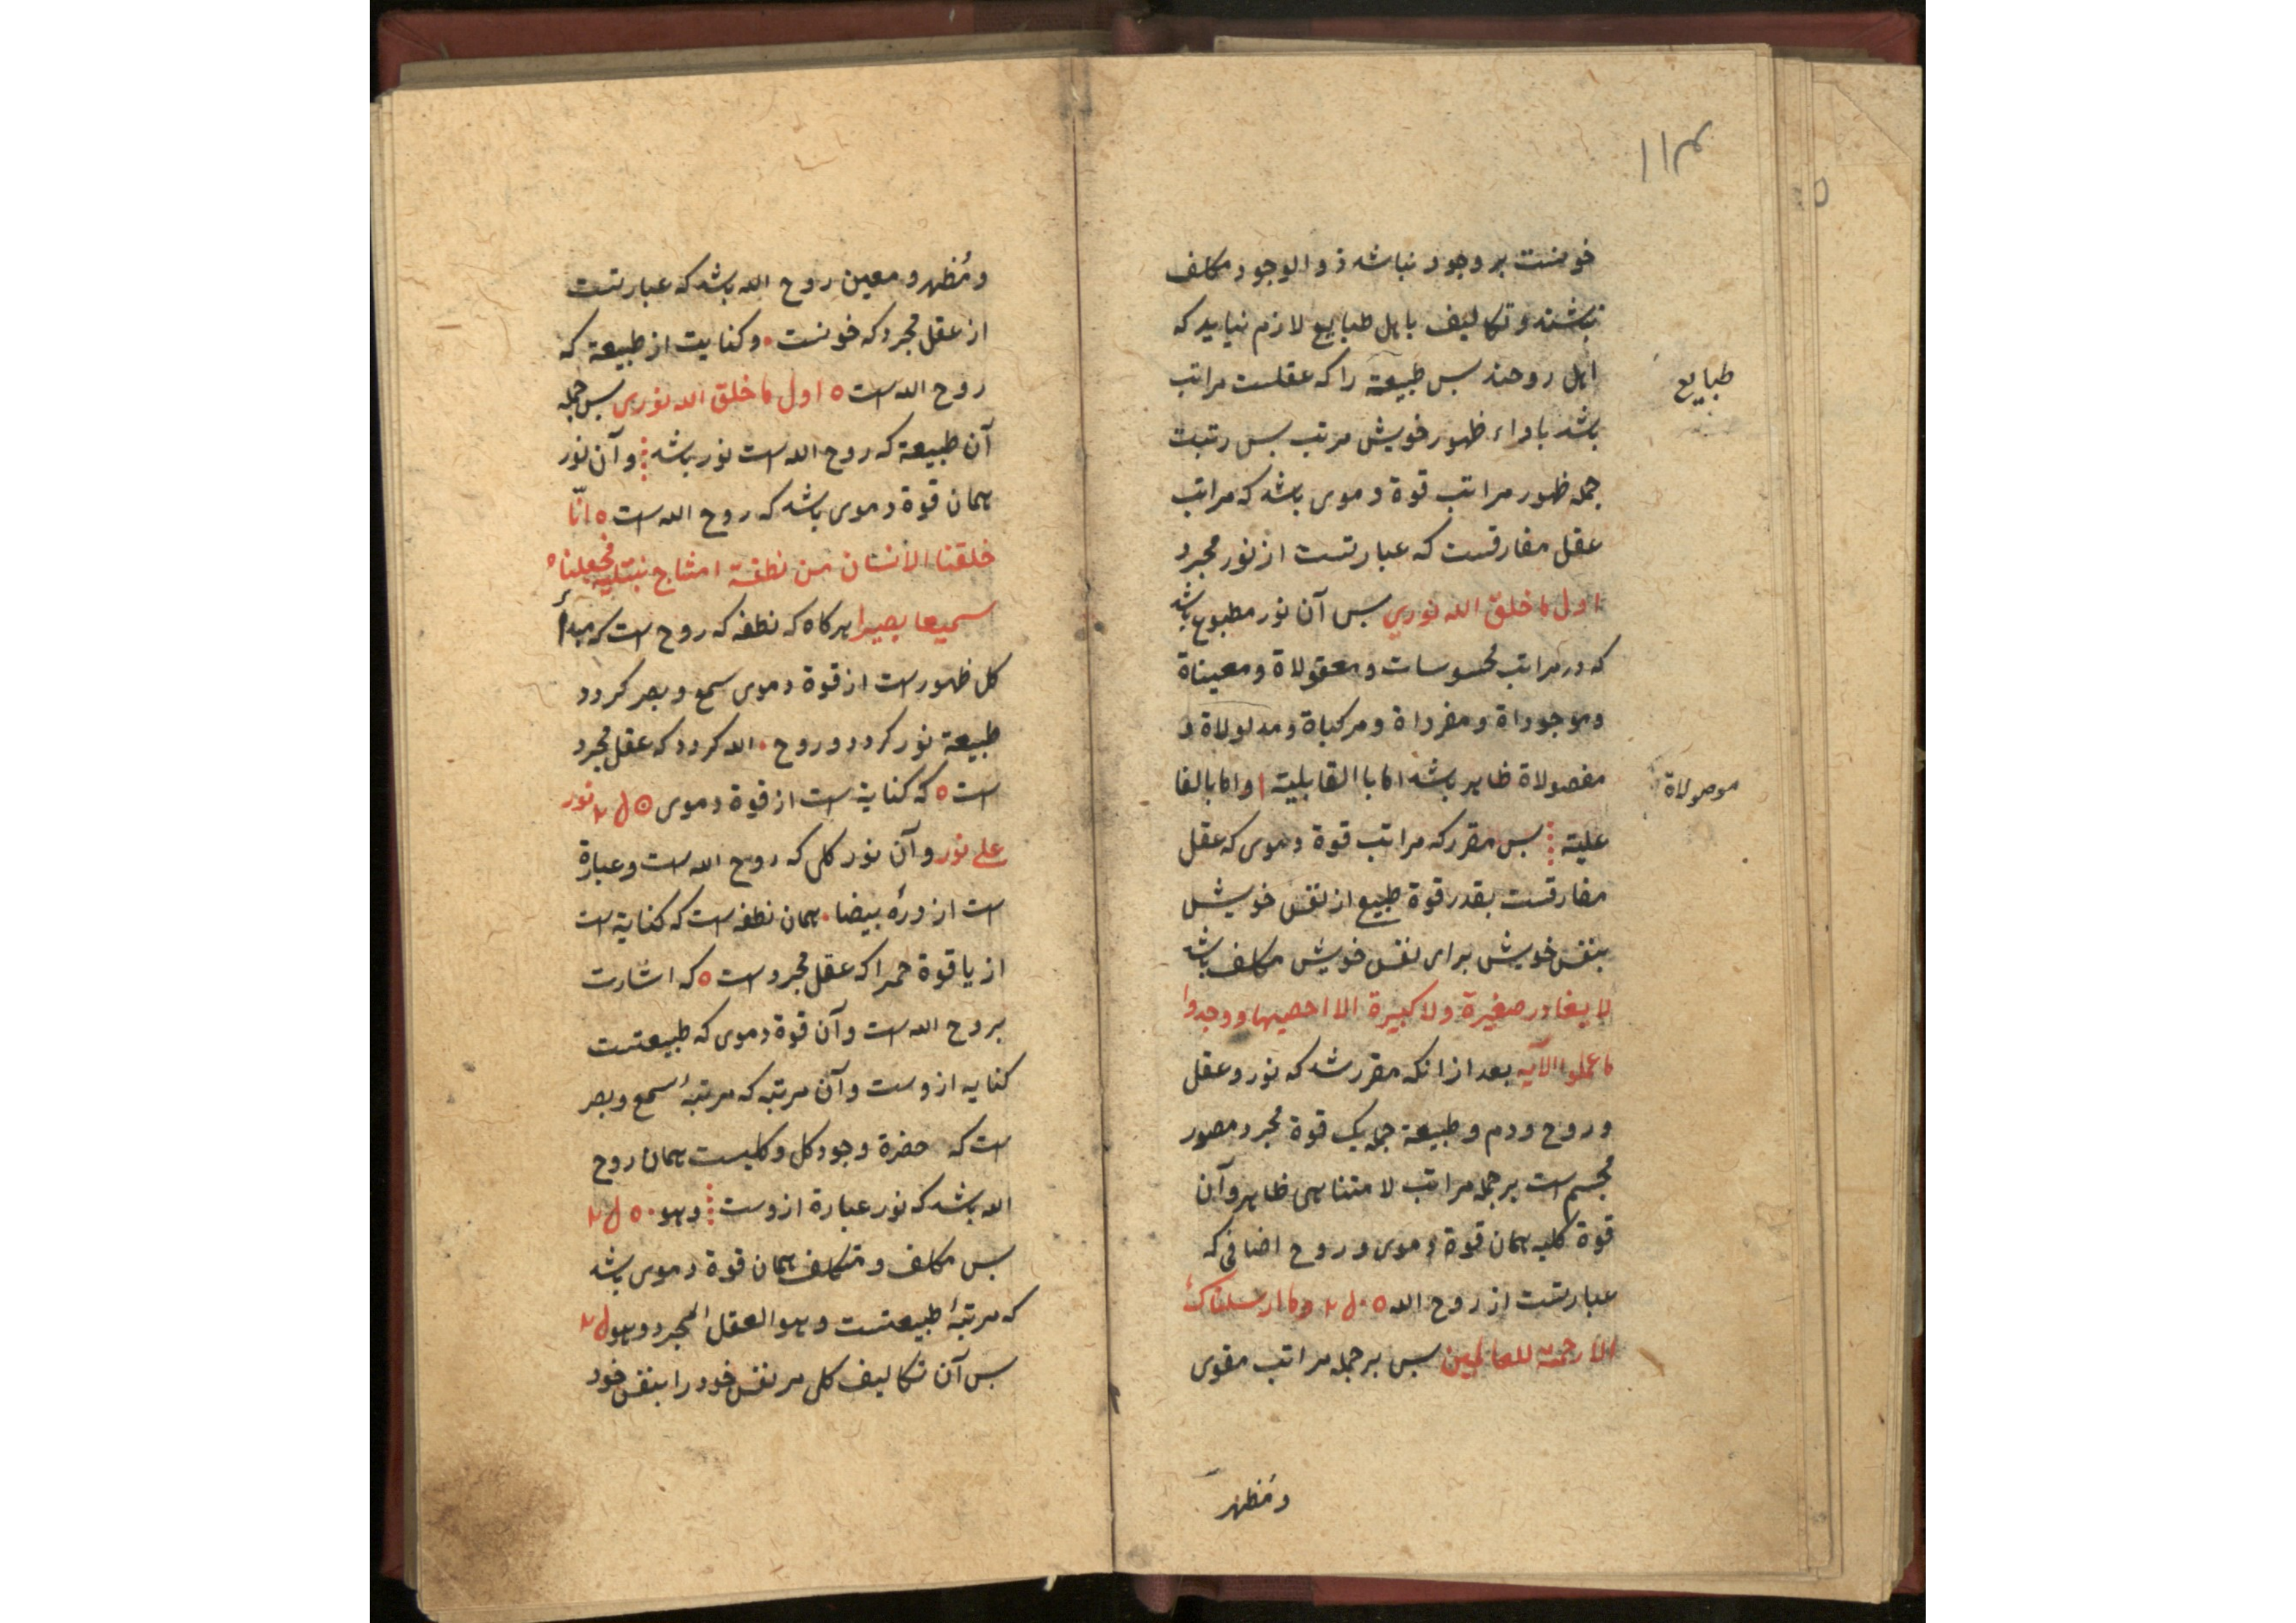 ۱۱۴
خونست بر وجود نباشد ذو الوجود مکلف
نباشند و تکالیف باهل طبایع لازم نیاید که
اهل روحند بس طبیعة را که عقلست مراتب
باشد باداء ظهور خویش مرتب بس رتبت
جمله ظهور مراتب قوة دموی باشد که مراتب
عقل مفارقست که عبارتست از نور مجرد
اول ما خلق الله نوری بس آن نور مطبوع باشد
که در مراتب محسوسات و معقولاة و معیناة
و موجوداة و مفرداة و مرکباة و مدلولاة و
مفصولاة ظاهر باشد اما باالقابلیة ا واما بالفا
علیته بس مقرر که مراتب قوة دموی که عقل
مفارقست بقدر قوة طبیع از نفس خویش
بنفس خویش برای نفس خویش مکلف باشد
لا یغادر صغیرة ولا کبیرة الا احصیها ووجدوا
ما عملوا الآیه بعد از انکه مقرر شد که نور و عقل
و روح و دم و طبیعة جمله یک قوة مجرد مصور
مجسم است بر جمله مراتب لا متناهی ظاهر و آن
قوة کلیه همان قوة دموی و روح اضافی که
عبارتست از روح الله وما ارسلناک
الا رحمة للعالمین بس بر جمله مراتب مقوی
و مُظهر
طبایع
موصولاة
و مُظهر و معین روح الله باشد که عبارتست
از عقل مجرد که خونست و کنایت از طبیعة که
روح الله است اول ما خلق الله نوری بس جمله
آن طبیعة که روح الله است نور باشد و آن نور
همان قوة دموی باشد که روح الله است انّا
خلقنا الانسان من نطفة امشاج نبتلیه فجعلناه
سمیعا بصیرا هرکاه که نطفه که روح است که مبدأ
کل ظهور است از قوة دموی سمع و بصر کردد
طبیعة نور کردد و روح الله کردد که عقل مجرد
است که کنایة است از قوة دموی نور
علی نور و آن نور کلی که روح الله است و عبارة
است از درهٔ بیضا همان نطفه است که کنایة است
از یاقوة حمرا که عقل مجرد است که اشارت
بروح الله است و آن قوة دموی که طبیعتست
کنایه از وست و آن مرتبه که مرتبهٔ سمع و بصر
است که حضرة وجود کل و کلیست همان روح
الله باشد که نور عبارة از وست وهو
بس مکلف و متکلف همان قوة دموی باشد
که مرتبهٔ طبیعتست وهو العقل المجرد وهو
بس آن تکالیف کلی مر نفس خود را بنفس خود